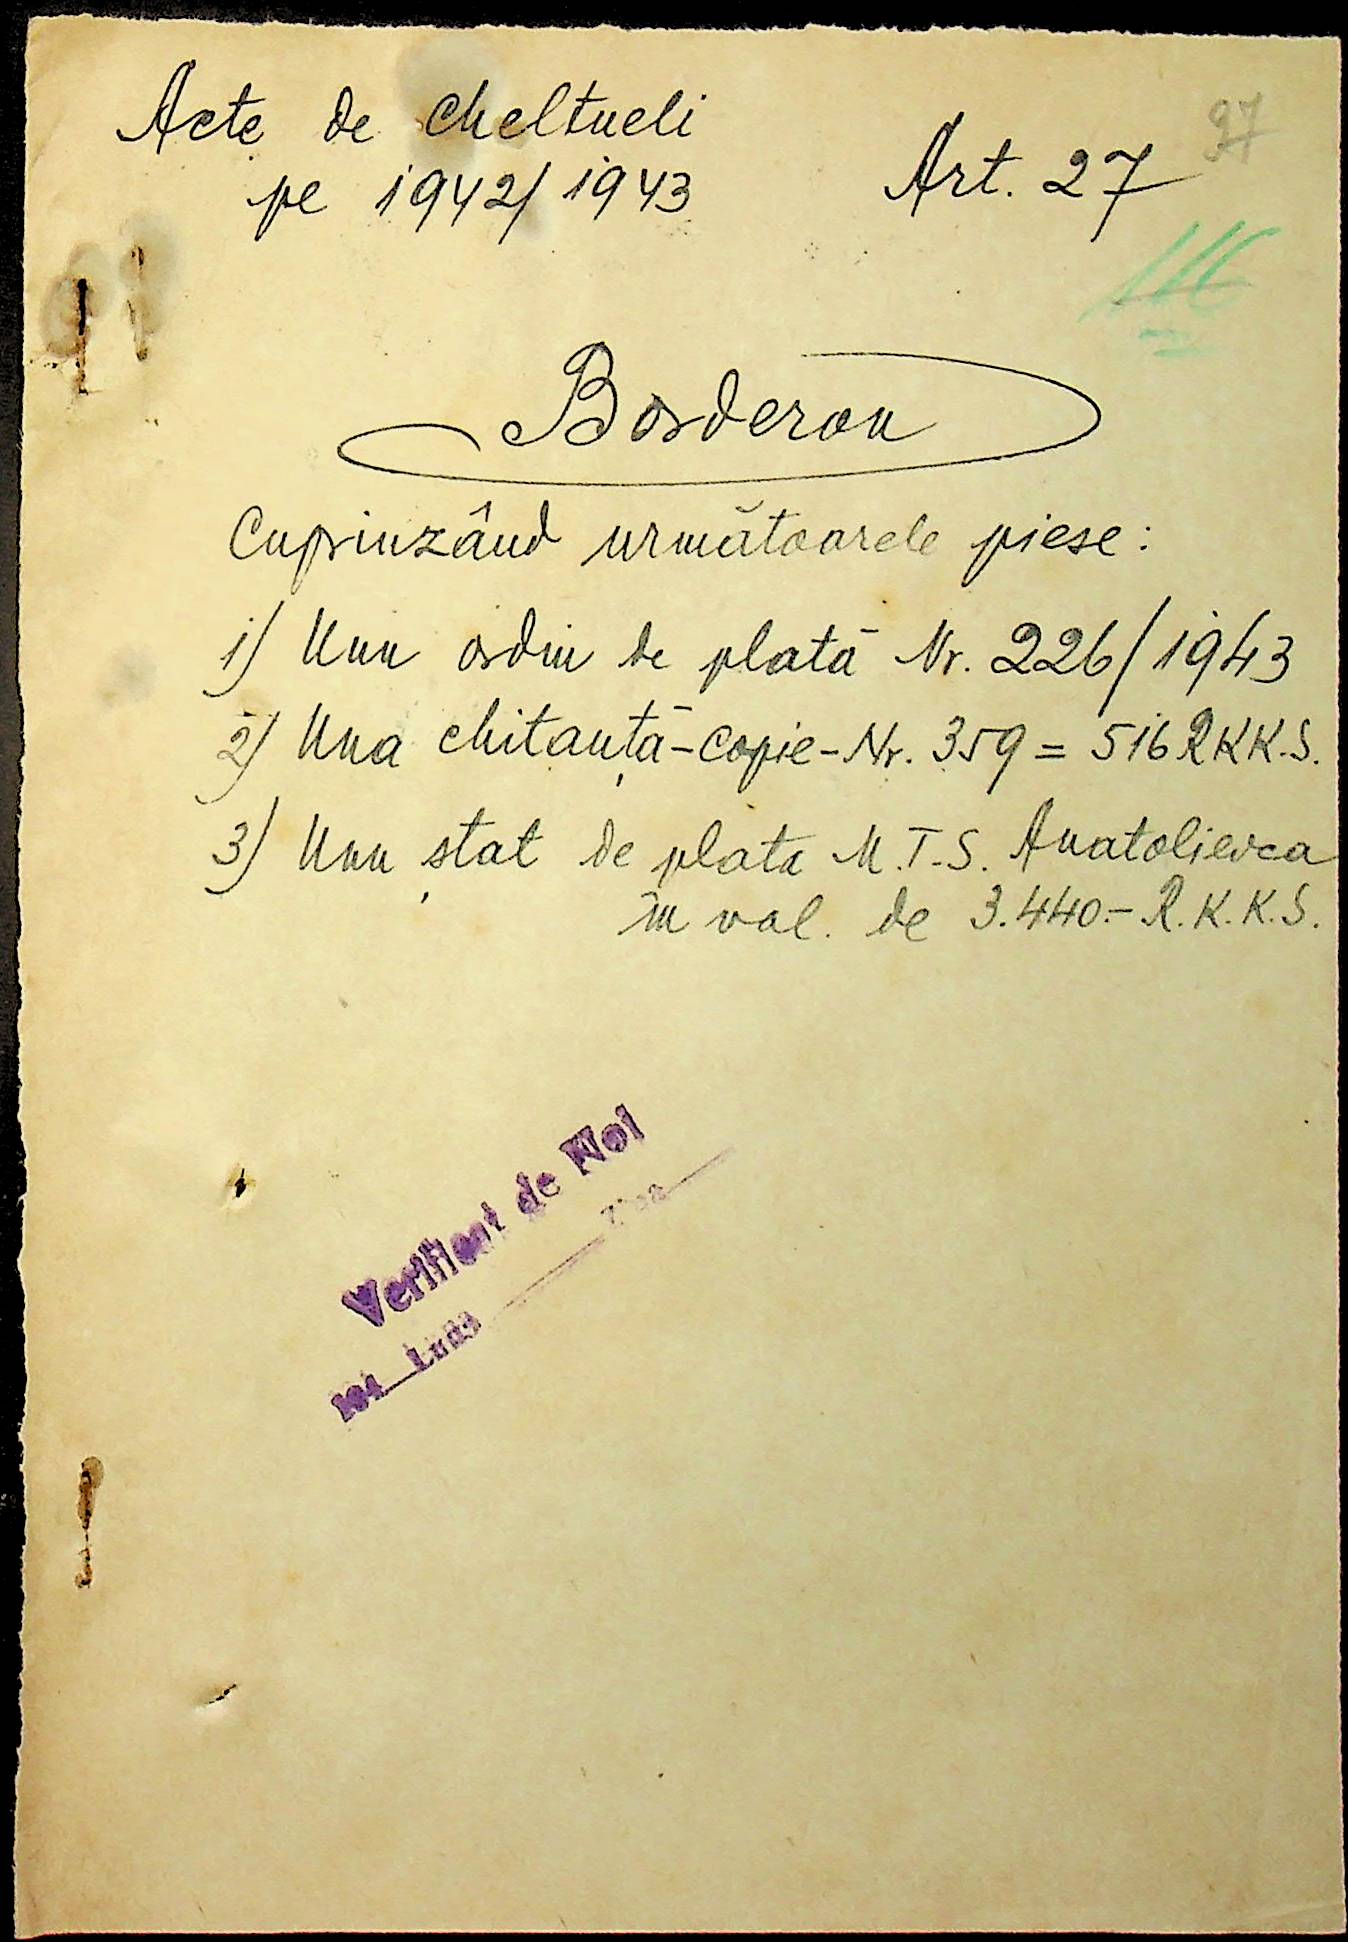 Acte de cheltueli
pe 1942/1943
Art. 27
97
116
Borderou
Cuprinzând următoarele piese:
1) Unu ordin de plată Nr. 226/1943
2) Una chitanță-copie-Nr. 359 = 516 RKK.S.
3) Unu ștat de plata M.T.S. Anatolievca
în val. de 3.440.- R.K.K.S.
Verificat de Noi
194 Luna Ziua